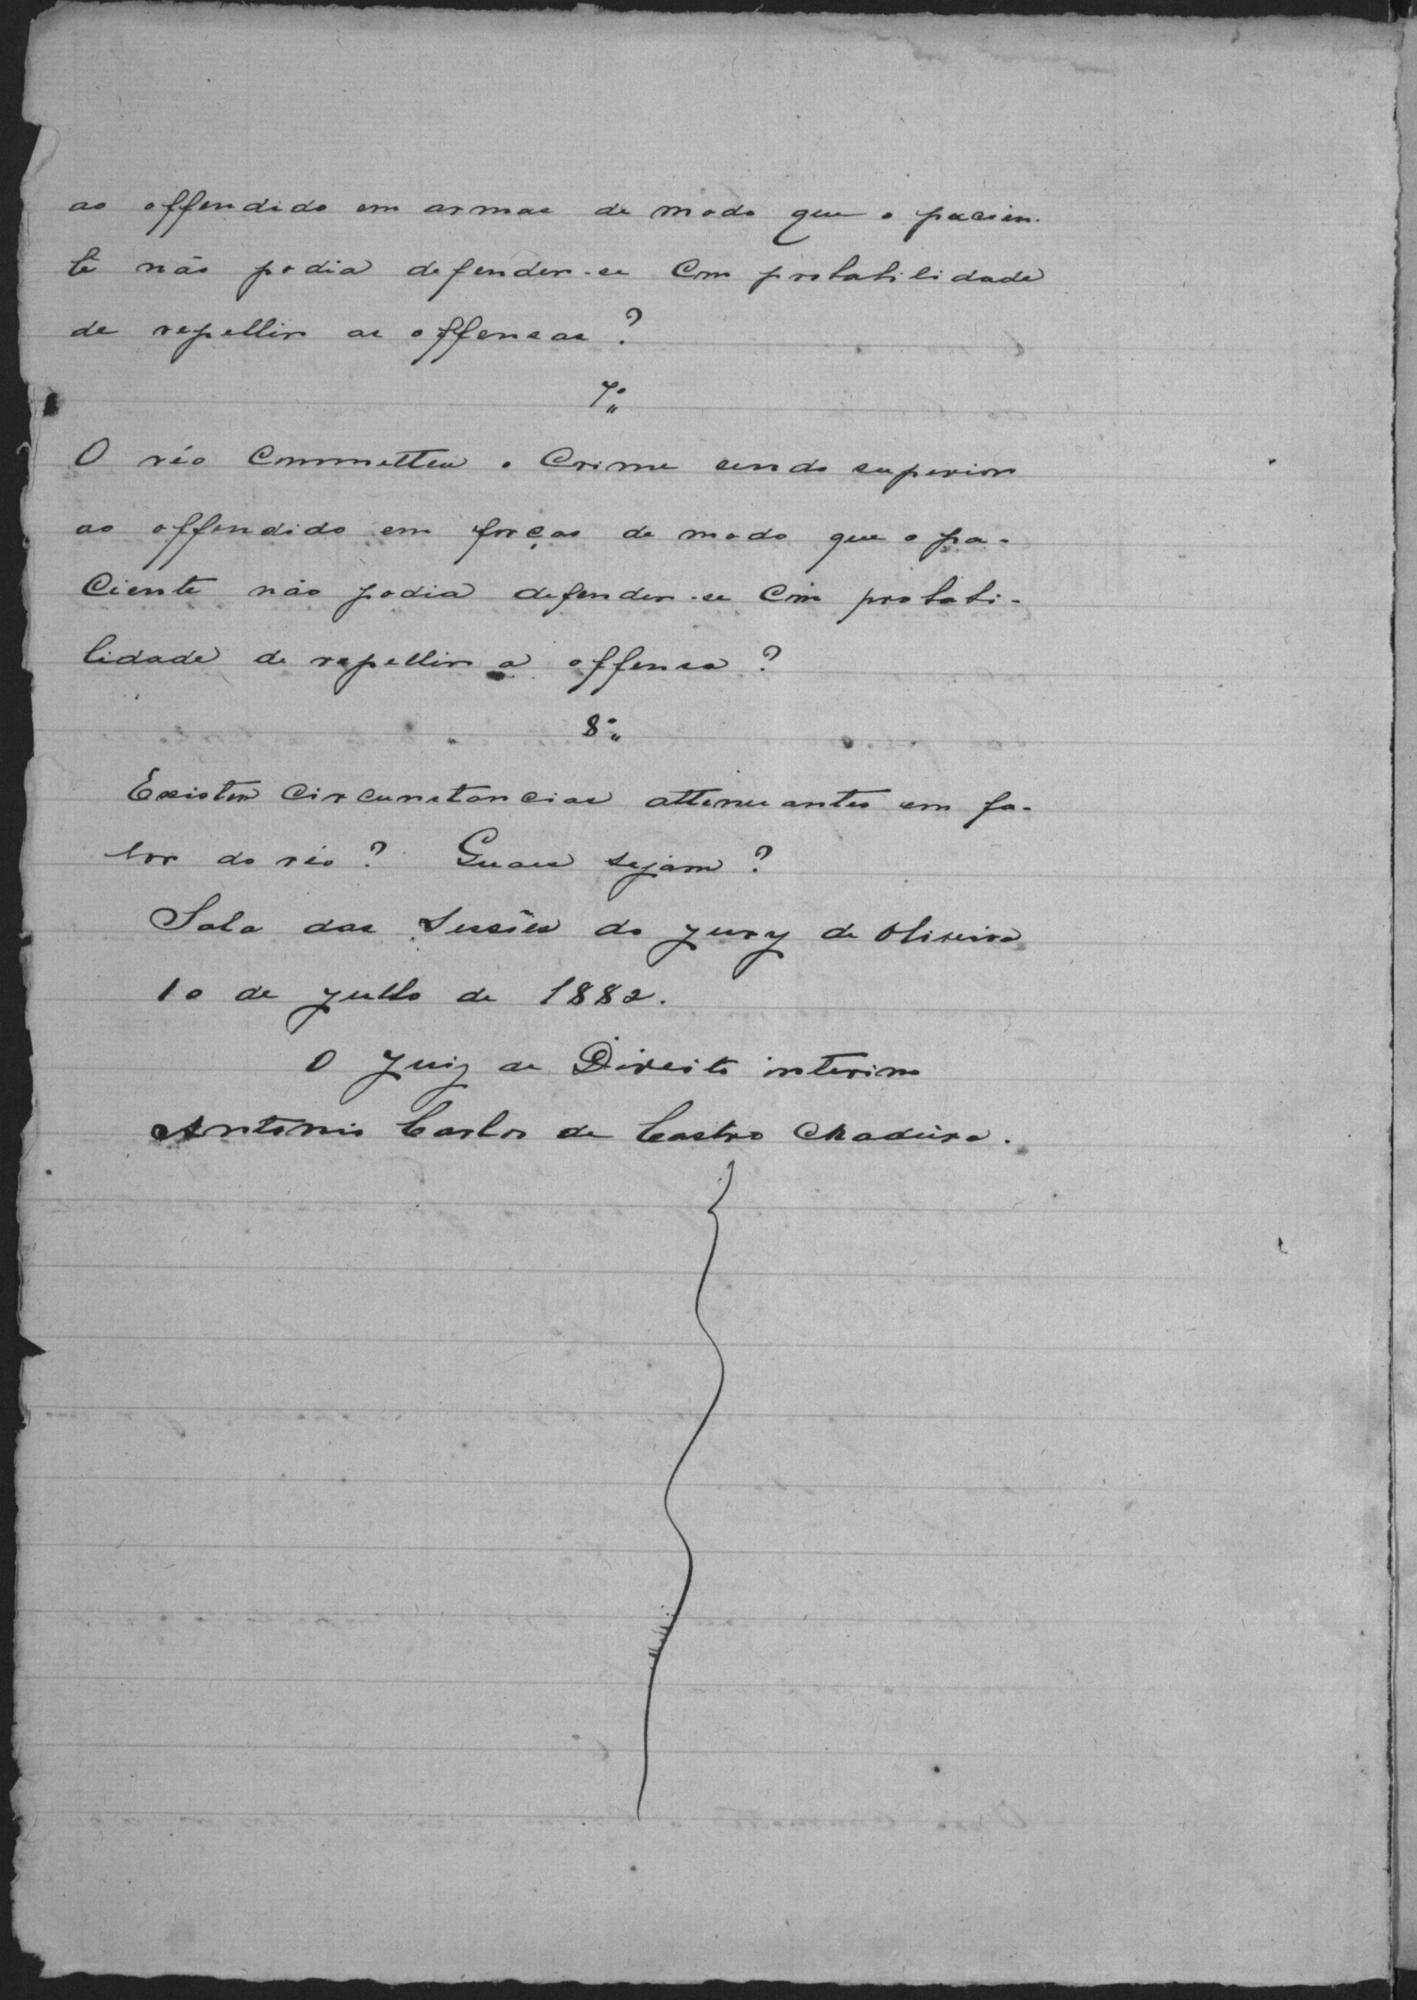 ao offendido em armas de modo que o pacien-
te não podia defender-se com probabilidade
de repellir as offensas?
7º
O réo commetteu o crime sendo superior
ao offendido em forças de modo que o pa-
ciente não podia defender-se com probabi-
lidade de repellir a offensa?
8º
Existem circunstancias attenuantes em fa-
vor do réo? Quaes sejam?
Sala das Sessões do jury de Oliveira
10 de julho de 1882.
O Juiz de Direito interino
Antonio Carlos de Castro Madeira.